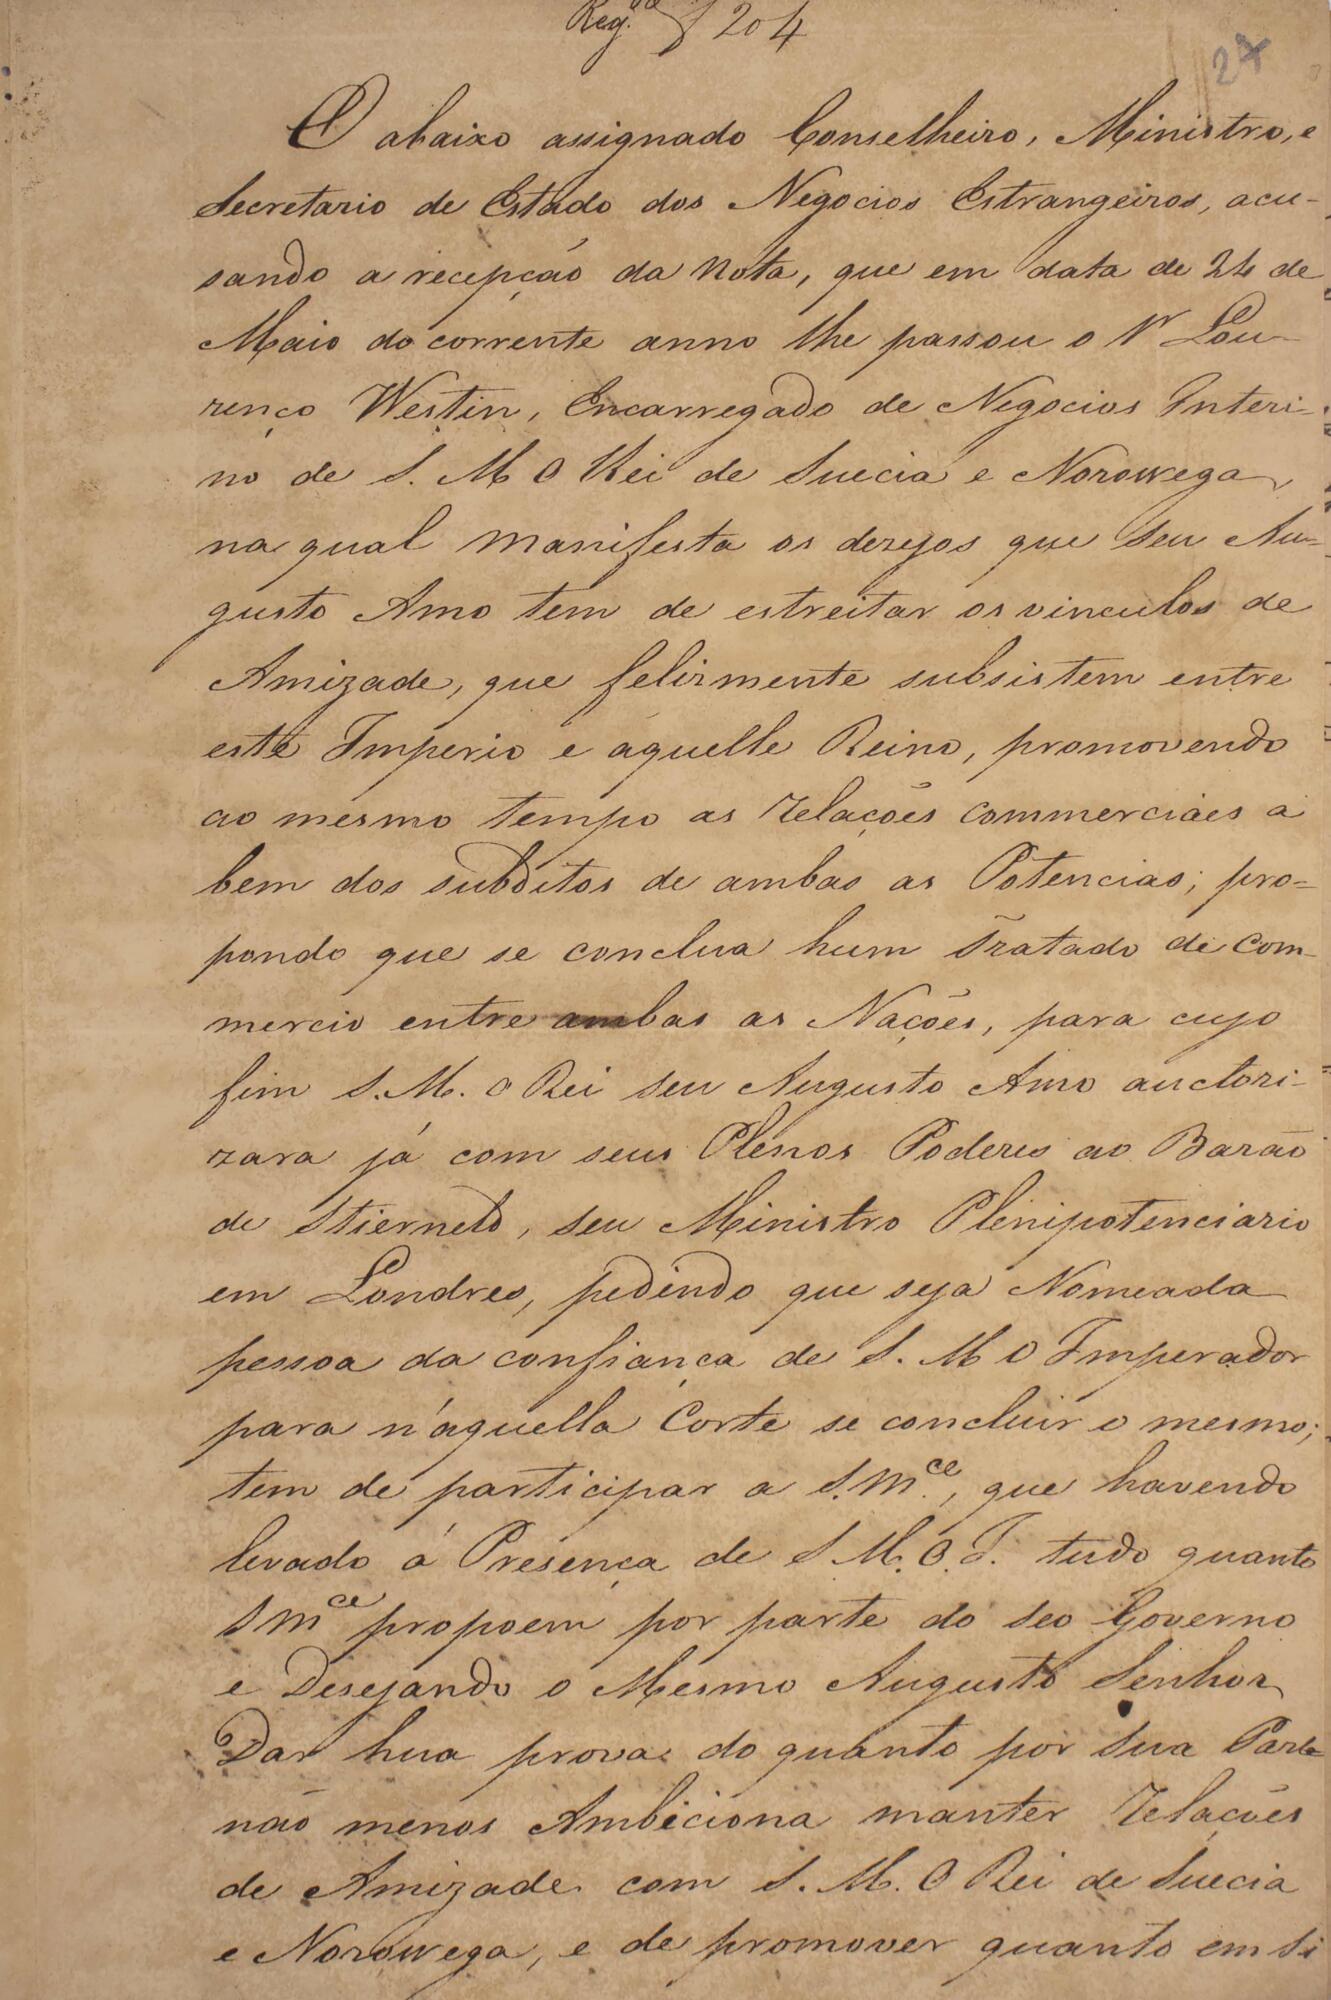 Reg.do f 204
27
O abaixo assignado Conselheiro, Ministro, e
Secretario de Estado dos Negocios Estrangeiros, acu-
sando a recepção da Nota, que em data de 24 de
Maio do corrente anno lhe passou o Sr Lou-
renço Westin, Encarregado de Negocios Interi-
no de S. M O Rei de Suecia e Norowega,
na qual manifesta os dezejos que Seu Au-
gusto Amo tem de estreitar os vinculos de
Amizade, que felizmente subsistem entre
este Imperio e aquelle Reino, promovendo
ao mesmo tempo as relações commerciaes a
bem dos subditos de ambas as Potencias; pro-
pondo que se conclua hum Tratado de Com-
mercio entre ambas as Nações, para cujo
fim S. M. O Rei Seu Augusto Amo auctori-
zara já com seus Plenos Poderes ao Barão
de Stierneld, seu Ministro Plenipotenciario
em Londres, pedindo que seja Nomeada
pessoa da confiança de S. M O Imperador
para n'aquella Corte se concluir o mesmo;
tem de participar a S. Mce, que havendo
levado á Presença de S M. O. I. tudo quanto
S Mce propoem por parte do seo Governo
e Desejando o Mesmo Augusto Senhor
Dar hua prova do quanto por Sua Parte
não menos Ambiciona manter Relações
de Amizade com S. M. O Rei de Suecia
e Norowega, e de promover quanto em Si